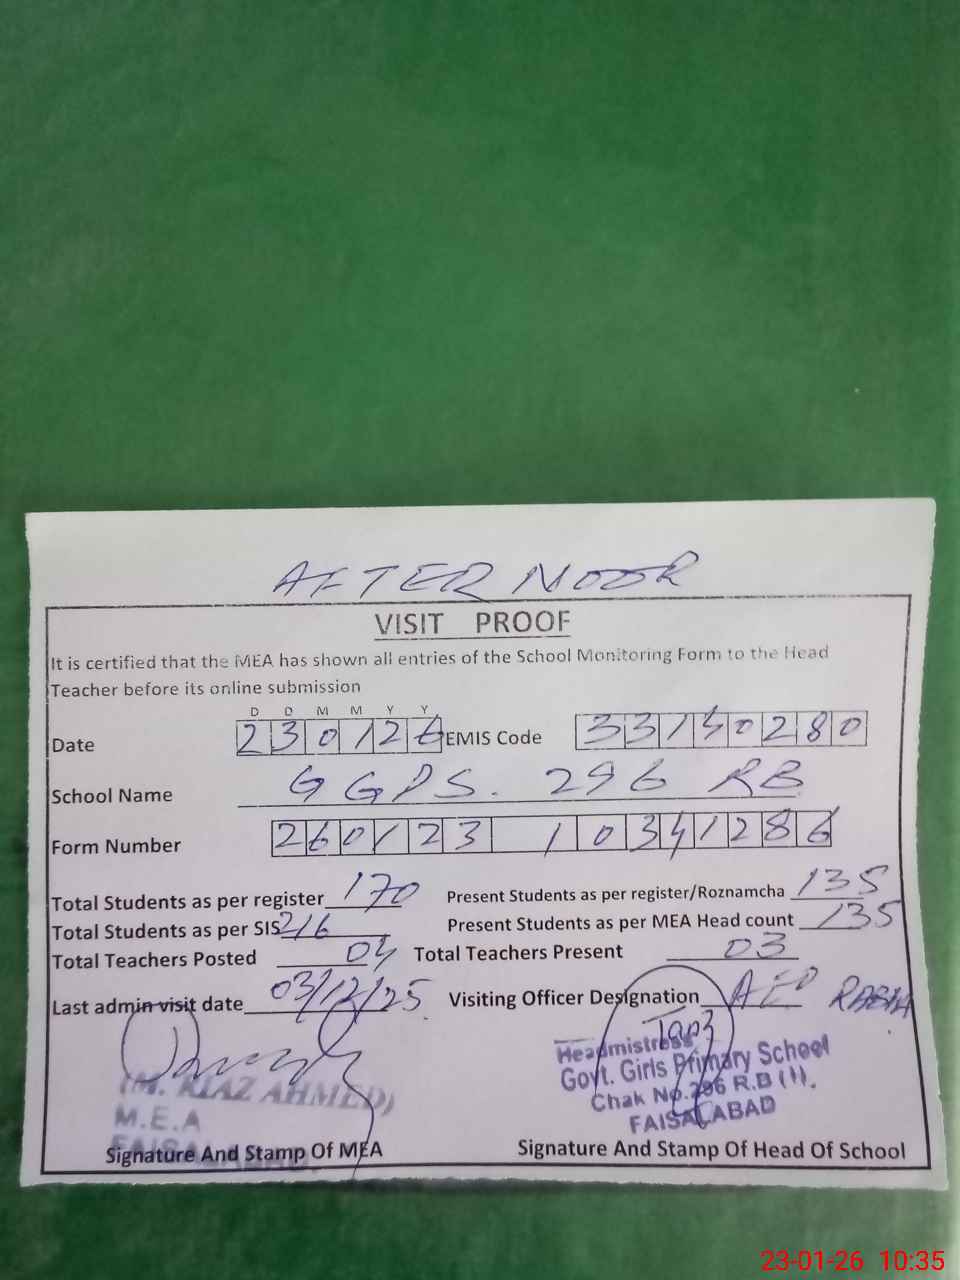 AFTER NOOR
VISIT PROOF
It is certified that the MEA has shown all entries of the School Monitoring Form to the Head
Teacher before its online submission
D D M M Y Y
Date 230126 EMIS Code 33140280
School Name GGPS. 296 RB
Form Number 260123 10341286
Total Students as per register 170 Present Students as per register/Roznamcha 135
Total Students as per SIS 216 Present Students as per MEA Head count 135
Total Teachers Posted 04 Total Teachers Present 03
Last admin visit date 03/12/25 Visiting Officer Designation AEO RABIA
Headmistress
(M. RIAZ AHMED) Govt. Girls Primary School
M.E.A Chak No.296 R.B (I).
FAISALABAD
Signature And Stamp Of MEA Signature And Stamp Of Head Of School
23-01-26 10:35